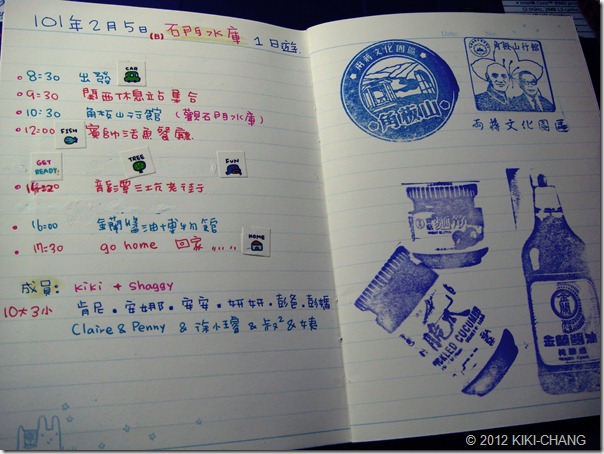 101年2月5日(日)石門水庫 1日遊
8:30 出發 CAR
9:30 關西休息站集合
10:30 角板山行館 (觀石門水庫)
12:00 FISH 賓帥活魚餐廳
GET READY! TREE FUN
龍潭三坑老街
16:00 金蘭醬油博物館
17:30 go home 回家 HOME
成員: kiki + shaggy
10大3小 肯尼.安娜.安安.妍妍.彭爸.彭媽
Claire & Penny &
Date
兩蔣文化園區
角板山
角板山行館
兩蔣文化園區
脆瓜
CUCUMBER
金蘭醬油
© 2012 KIKI-CHANG